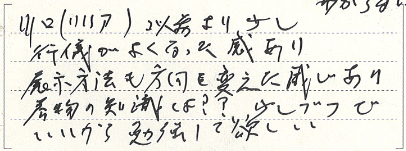 山口(リリア) 以前より少し
行儀がよくなった感あり
展示方法も方向を変えた感じあり
着物の知識は?? 少しづつで
いいから勉強して欲しい